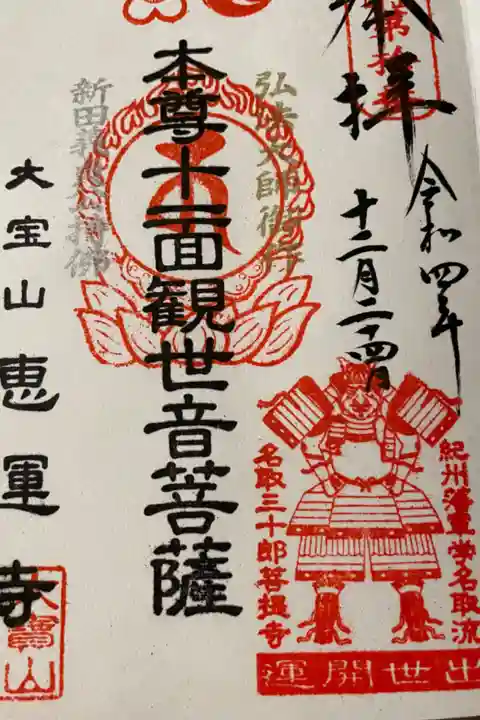 奉拝
令和四年
十二月二十四日
弘法大師御作
本尊十一面観世音菩薩
新田義重公持佛
大宝山恵運寺
大寶山
紀州藩軍学名取流
名取三十郎菩提寺
出世開運